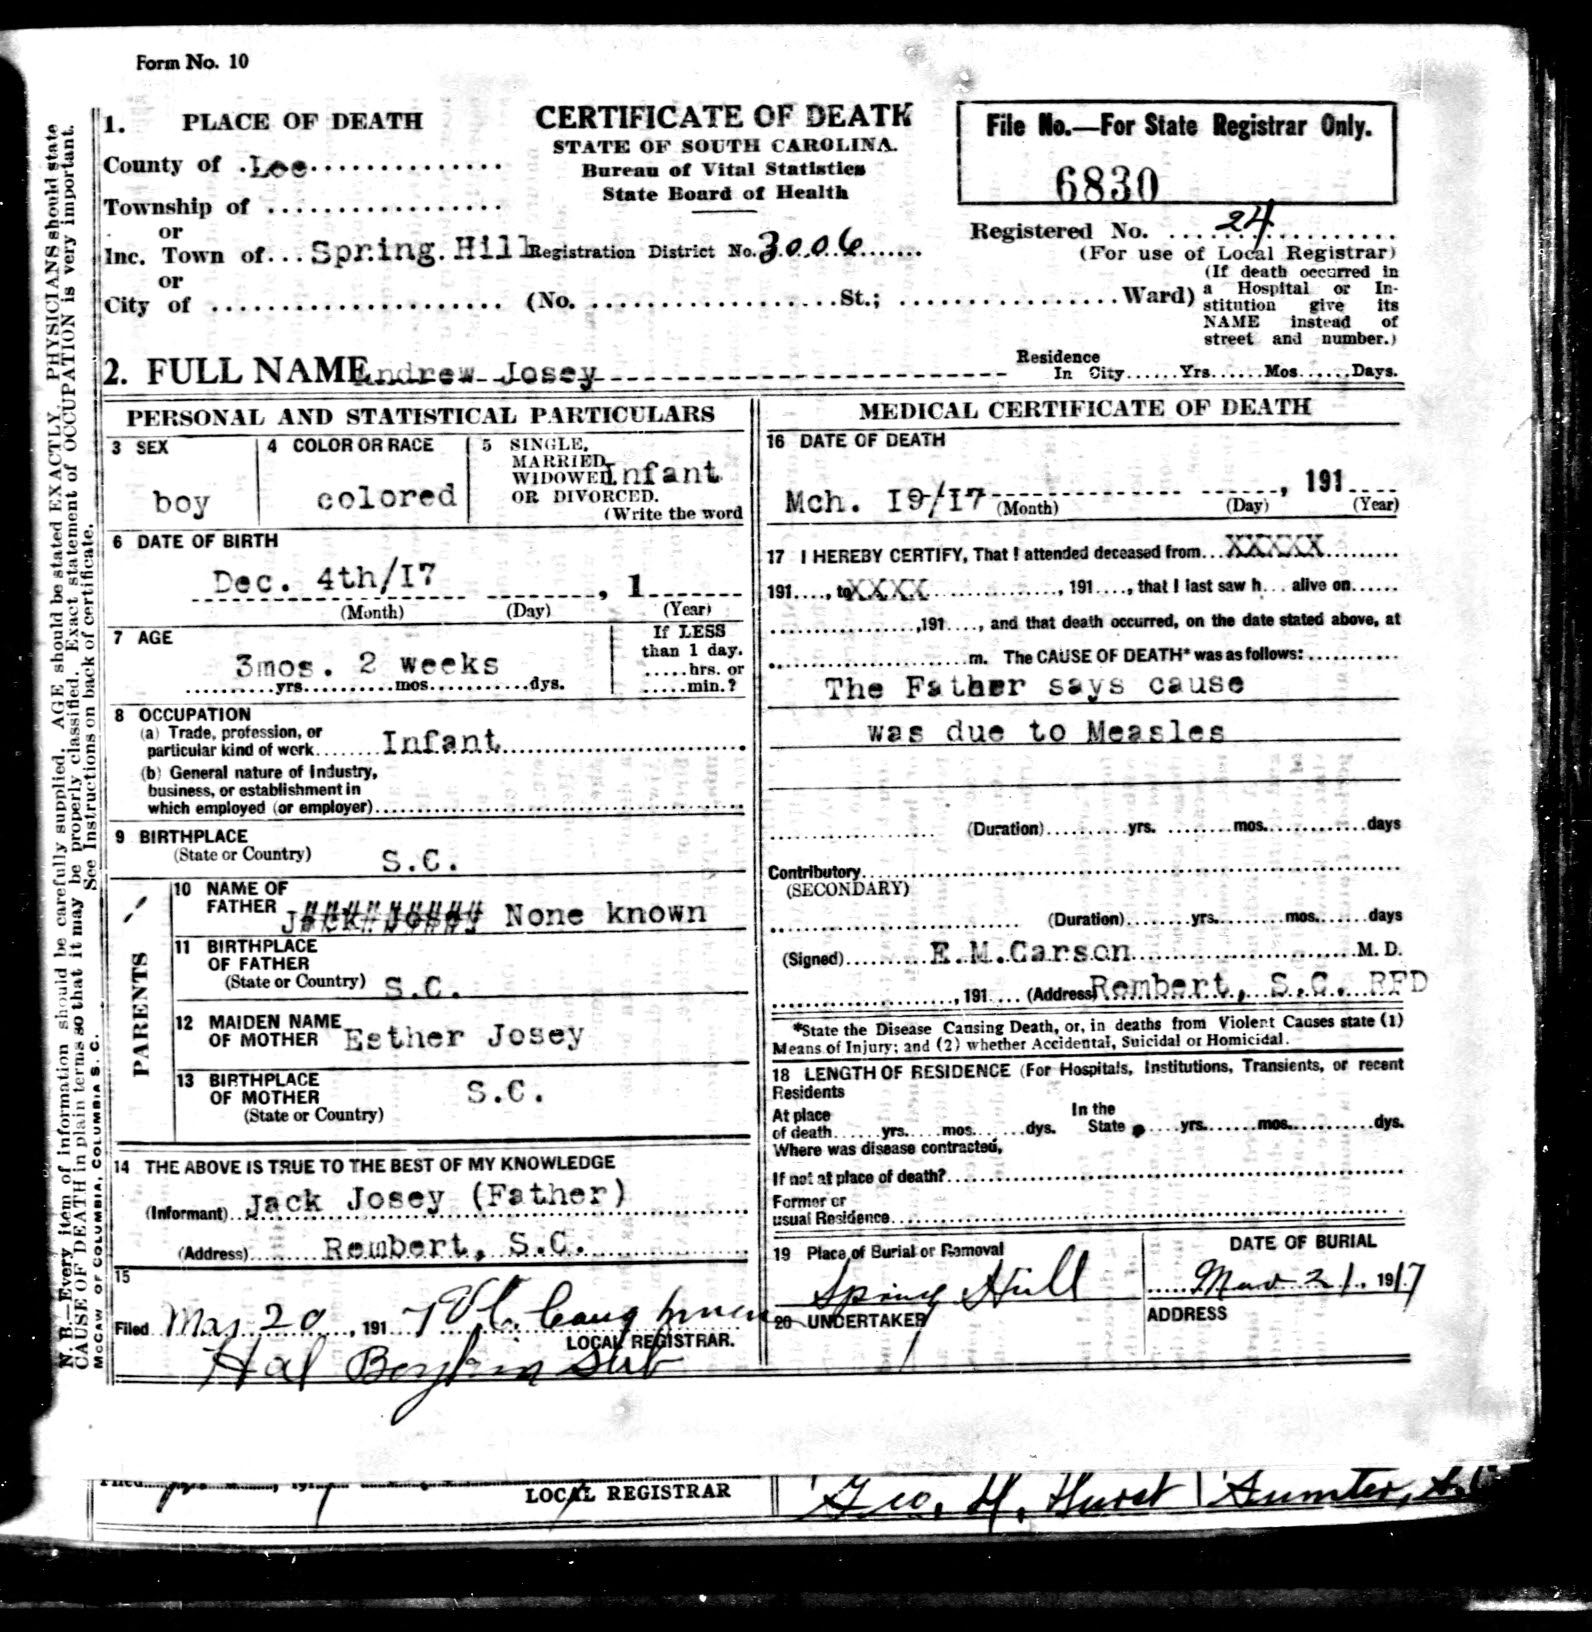 Form No. 10
1. PLACE OF DEATH
County of .Lee...............
Township of ..................
or
Inc. Town of...Spring.Hill
or
City of ...................... (No. ...................St.; .................Ward)
CERTIFICATE OF DEATH
STATE OF SOUTH CAROLINA.
Bureau of Vital Statistics
State Board of Health
Registration District No.3006.......
File No.—For State Registrar Only.
6830
Registered No. ....24..........
(For use of Local Registrar)
(If death occurred in
a Hospital or In-
stitution give its
NAME instead of
street and number.)
2. FULL NAME Andrew Josey
Residence
In City......Yrs......Mos......Days.
PERSONAL AND STATISTICAL PARTICULARS
3 SEX
boy
4 COLOR OR RACE
colored
5 SINGLE,
MARRIED,
WIDOWED,
OR DIVORCED.
Infant
(Write the word
6 DATE OF BIRTH
Dec. 4th/I7 , 1
(Month) (Day) (Year)
7 AGE
3mos. 2 weeks
..........yrs..........mos..........dys.
If LESS
than 1 day.
.....hrs. or
.....min.?
8 OCCUPATION
(a) Trade, profession, or
particular kind of work.......Infant
(b) General nature of Industry,
business, or establishment in
which employed (or employer)
9 BIRTHPLACE
(State or Country) S.C.
PARENTS
10 NAME OF
FATHER Jack Josey None known
11 BIRTHPLACE
OF FATHER
(State or Country) S.C.
12 MAIDEN NAME
OF MOTHER Esther Josey
13 BIRTHPLACE
OF MOTHER
(State or Country) S.C.
14 THE ABOVE IS TRUE TO THE BEST OF MY KNOWLEDGE
(Informant)..Jack Josey (Father)
(Address)......Rembert, S.C.
15
Filed Mar 20, 191 7
LOCAL REGISTRAR.
Hal Boykin Sub
MEDICAL CERTIFICATE OF DEATH
16 DATE OF DEATH
Mch. I9/I7 , 191....
(Month) (Day) (Year)
17 I HEREBY CERTIFY, That I attended deceased from...XXXXX
191...., to XXXX, 191...., that I last saw h... alive on......
,191...., and that death occurred, on the date stated above, at
m. The CAUSE OF DEATH* was as follows:
The Father says cause
was due to Measles
(Duration)..........yrs. ........mos.............days
Contributory
(SECONDARY)
(Duration)........yrs.........mos.......days
(Signed)........E.M.Carson M. D.
, 191.... (Address) Rembert, S.C. RFD
*State the Disease Causing Death, or, in deaths from Violent Causes state (1)
Means of Injury; and (2) whether Accidental, Suicidal or Homicidal.
18 LENGTH OF RESIDENCE (For Hospitals, Institutions, Transients, or recent
Residents
At place
of death......yrs....mos......dys.
In the
State ....yrs.......mos..........dys.
Where was disease contracted,
If not at place of death?
Former or
usual Residence
19 Place of Burial or Removal
Spring Hill
DATE OF BURIAL
Mar 21, 1917
20 UNDERTAKER
ADDRESS
N. B.—Every item of information should be carefully supplied. AGE should be stated EXACTLY. PHYSICIANS should state
CAUSE OF DEATH in plain terms so that it may be properly classified. Exact statement of OCCUPATION is very important.
See Instructions on back of certificate.
McCAW OF COLUMBIA, COLUMBIA S. C.
LOCAL REGISTRAR
Geo. H. Hurst Sumter, S.C.